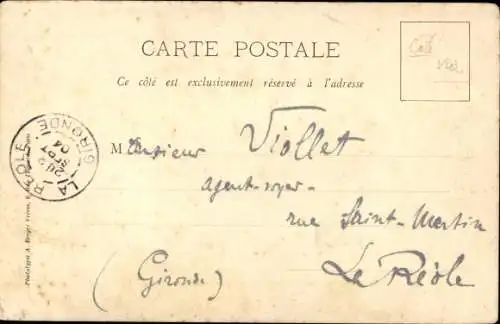 CARTE POSTALE
Ce côté est exclusivement réservé à l'adresse
Monsieur Viollet
agent-voyer-
rue Saint-Martin
La Réole
(Gironde)
LA RÉOLE
GIRONDE
SEPT
04
Phototypie A. Berger Frères, 9,